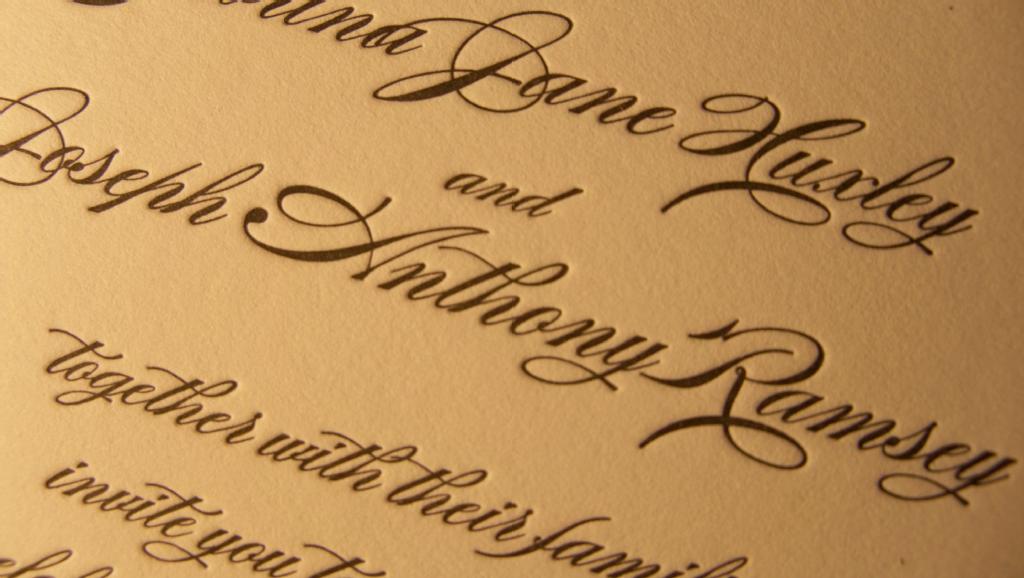 Jane Huxley
and
Joseph Anthony Ramsey
together with their
invite you